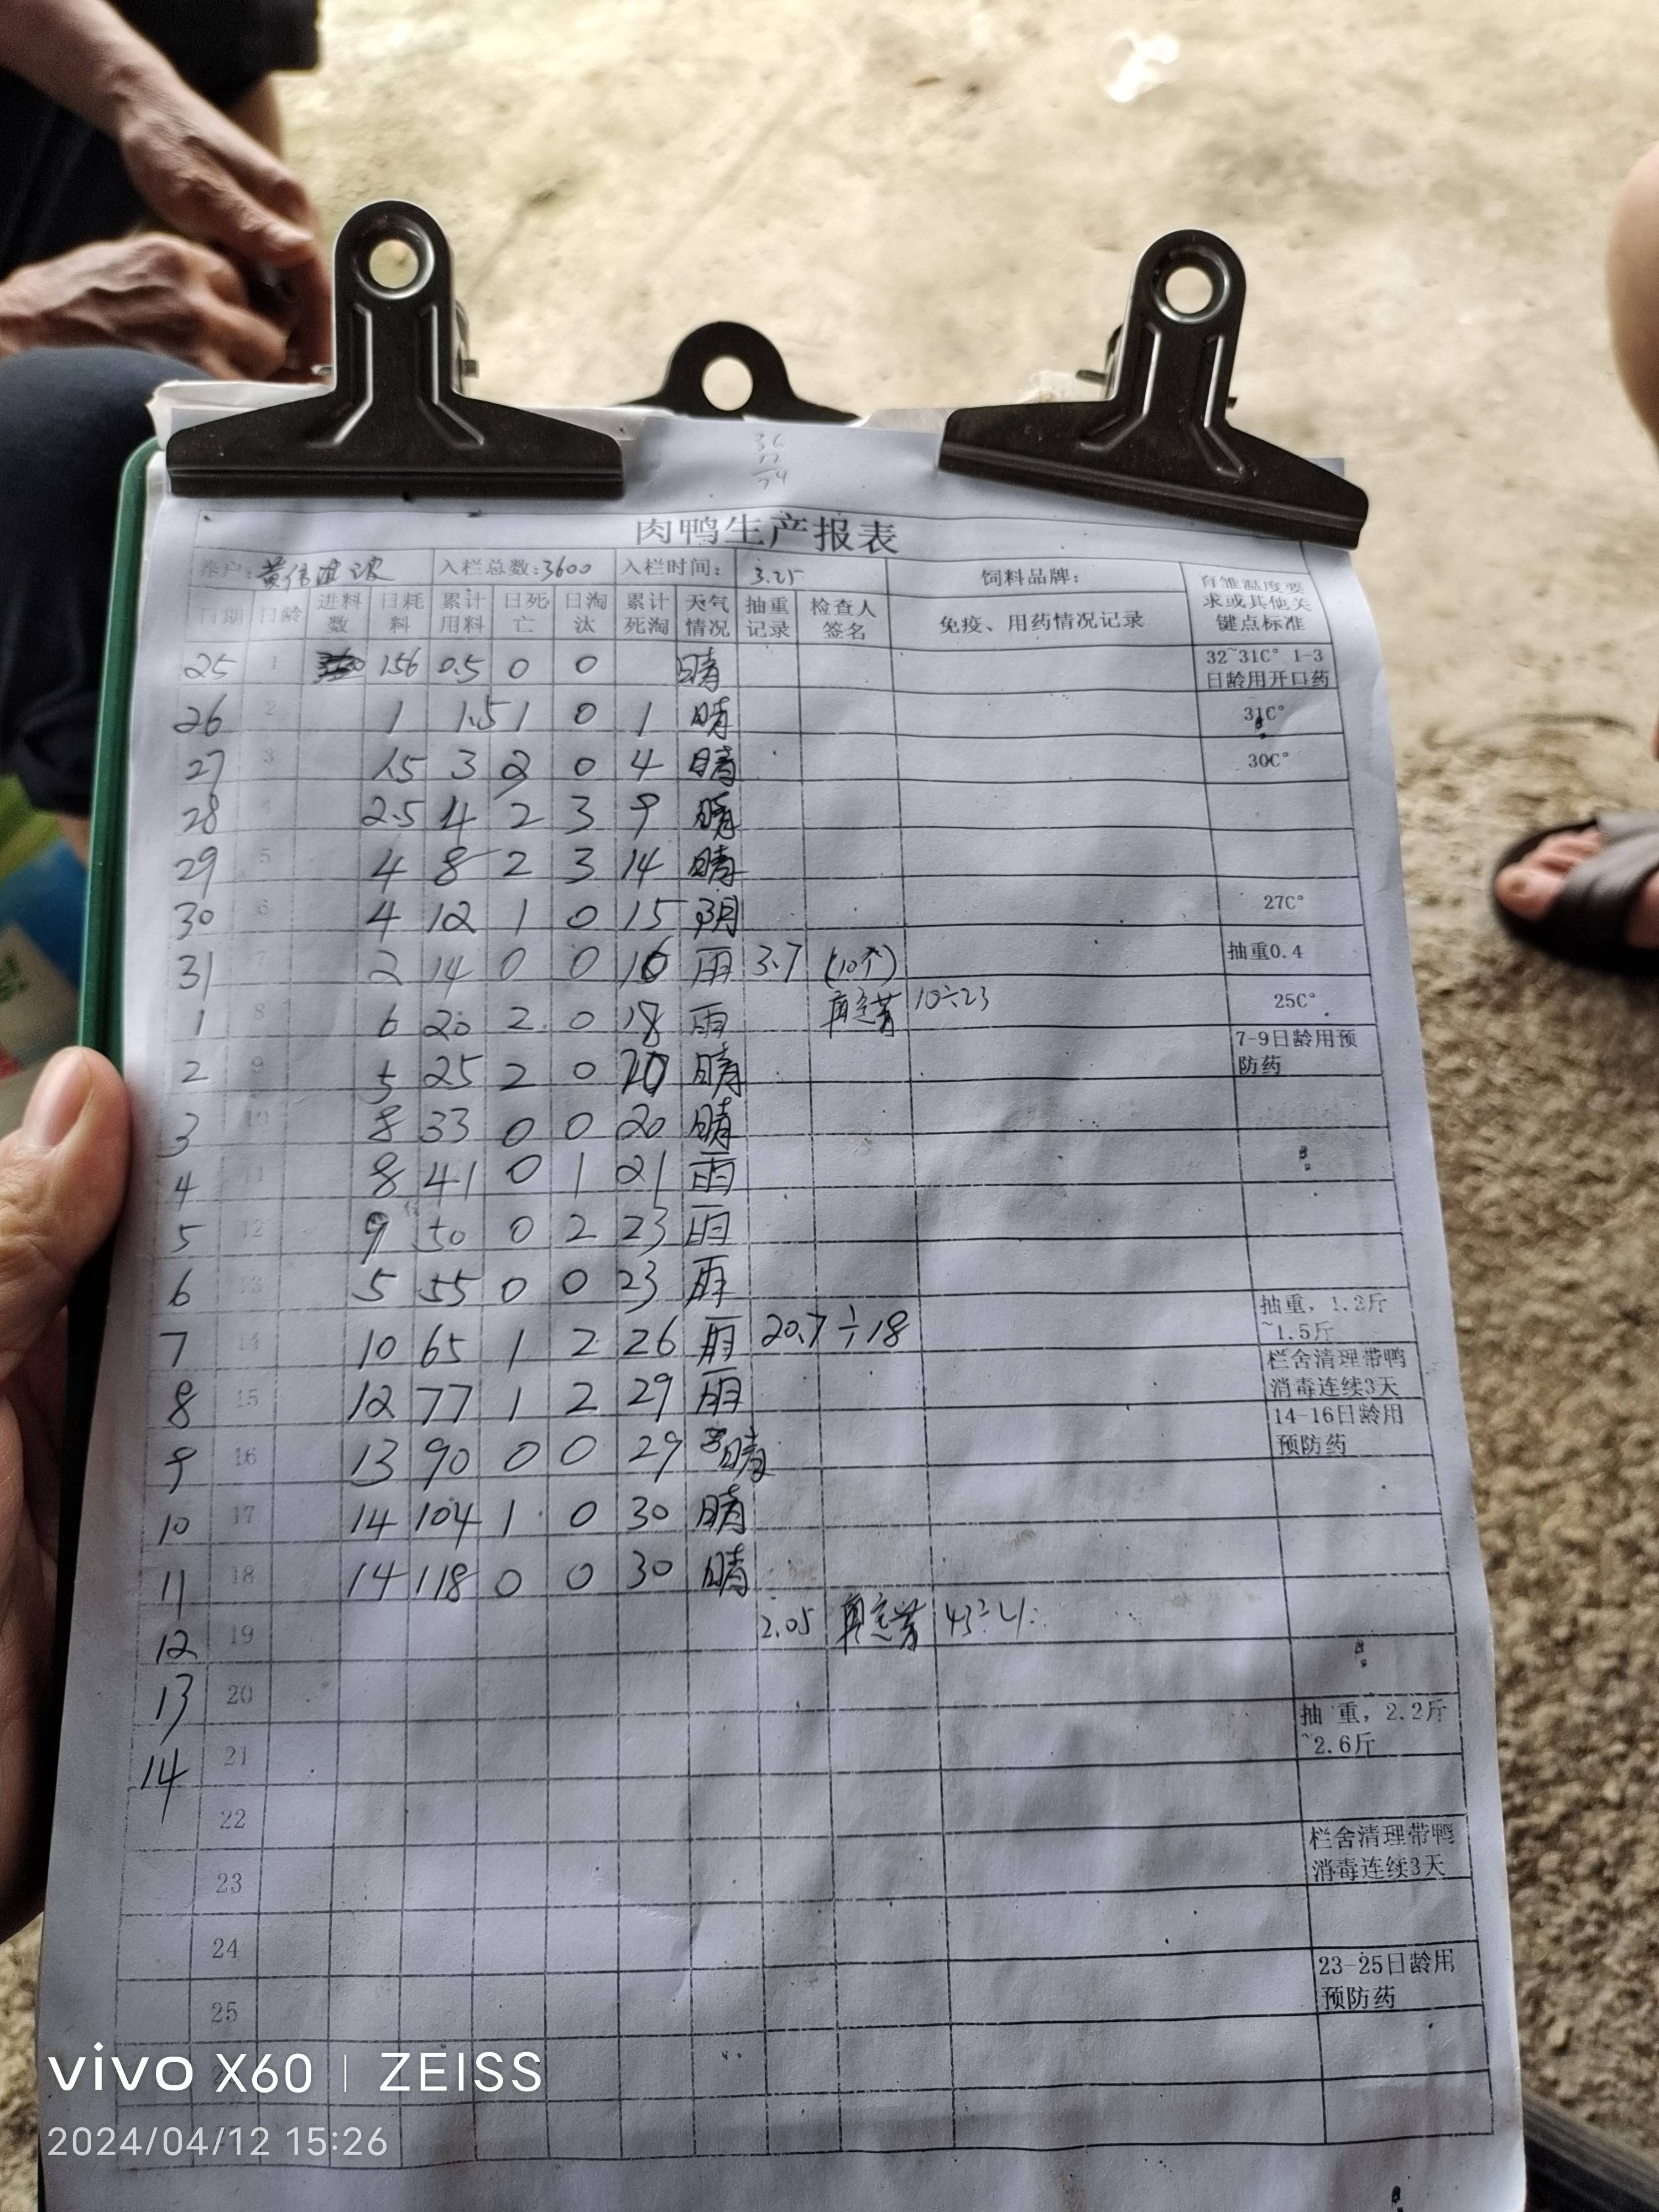 36
12
74
肉鸭生产报表
养户: 入栏总数:3600 入栏时间: 3.25 饲料品牌: 育雏温度要求或其他关键点标准
日期 日龄 进料数 日耗料 累计用料 日死亡 日淘汰 累计死淘 天气情况 抽重记录 检查人签名 免疫、用药情况记录
25 1 156 0.5 0 0 晴 32~31C° 1-3日龄用开口药
26 2 1 1.5 1 0 1 晴 31C°
27 3 1.5 3 2 0 4 晴 30C°
28 4 2.5 4 2 3 9 晴
29 5 4 8 2 3 14 晴
30 6 4 12 1 0 15 阴 27C°
31 7 2 14 0 0 16 雨 3.7 (10个) 抽重0.4
1 8 6 20 2 0 18 雨 10÷23 25C°
2 9 5 25 2 0 20 晴 7-9日龄用预防药
3 10 8 33 0 0 20 晴
4 11 8 41 0 1 21 雨
5 12 9 50 0 2 23 雨
6 13 5 55 0 0 23 雨
7 14 10 65 1 2 26 雨 20.7÷18 抽重，1.2斤~1.5斤
8 15 12 77 1 2 29 雨 栏舍清理带鸭消毒连续3天
9 16 13 90 0 0 29 晴 14-16日龄用预防药
10 17 14 104 1 0 30 晴
11 18 14 118 0 0 30 晴
12 19 2.05
13 20
14 21 抽 重，2.2斤~2.6斤
22
23 栏舍清理带鸭消毒连续3天
24
25 23-25日龄用预防药
vivo X60 | ZEISS
2024/04/12 15:26